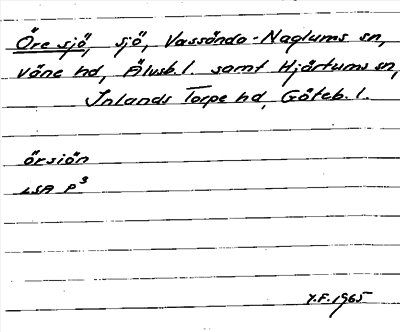 Öresjö, sjö, Vassända-Naglums sn,
Väne hd, Älvsb. l. samt Hjärtums sn,
Inlands Torpe hd, Göteb. l.
örsiön
LSA P3
Y.F. 1965